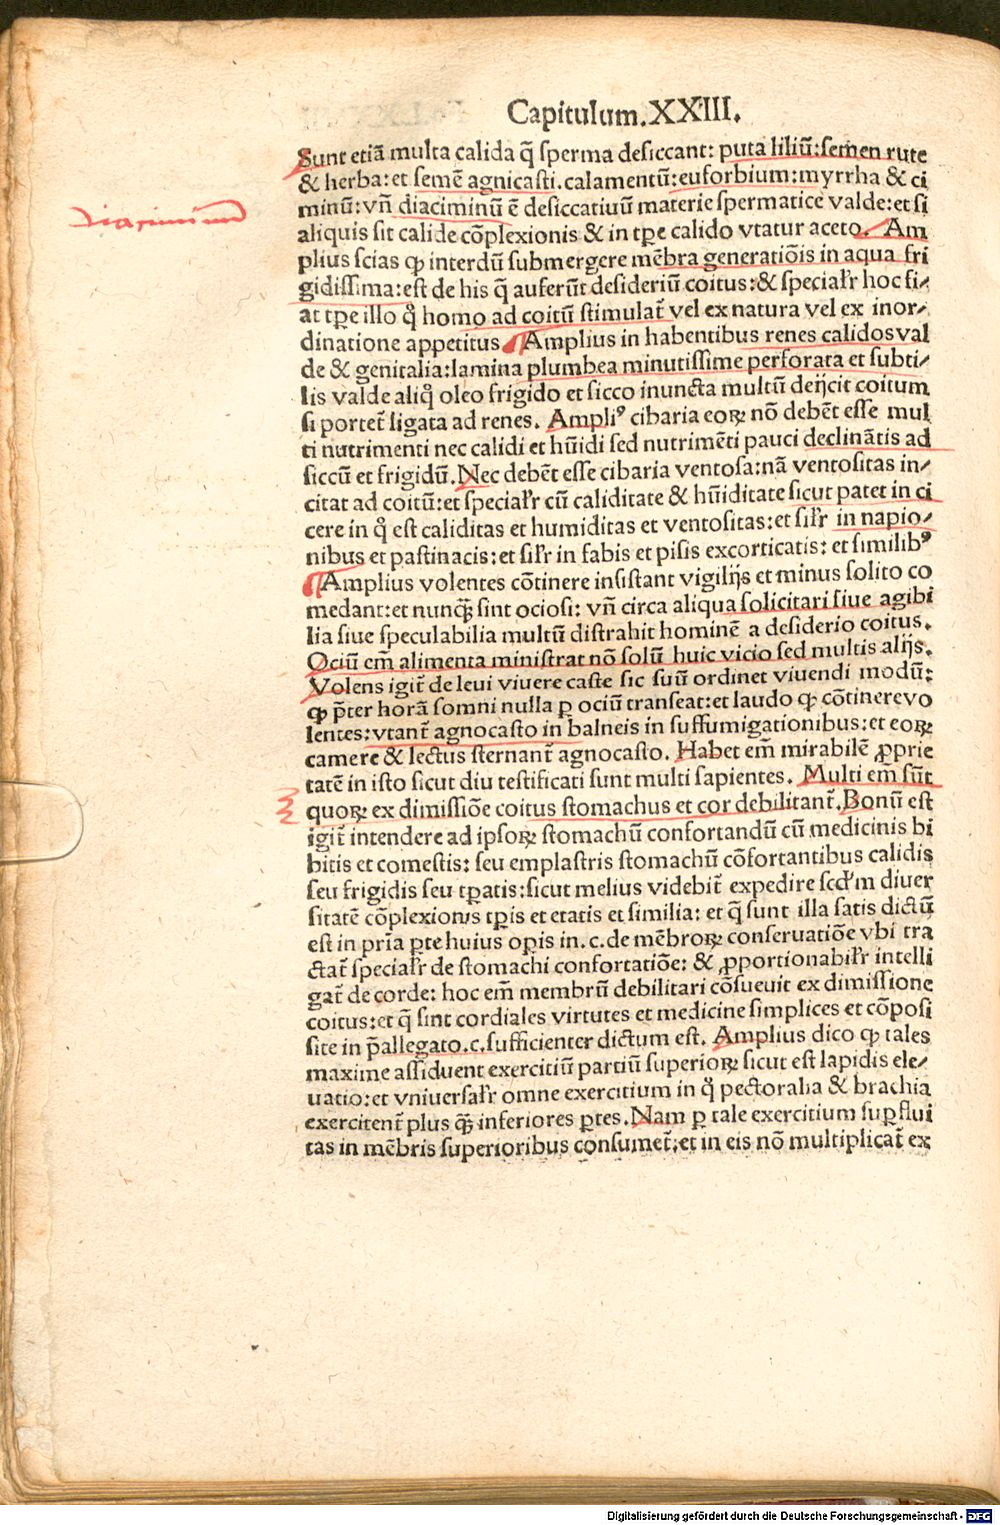 Capitulum.XXIII.
Sunt etiā multa calida q̄ sperma desiccant: puta liliū:semen rute
& herba:et semē agnicasti.calamentū:euforbium:myrrha & ci
minū:vñ diaciminū ē desiccatiuū materie spermatice valde:et si
diaciminum
aliquis sit calide cōplexionis & in tꝑe calido vtatur aceto. Am
plius scias ꝙ interdū submergere mēbra generatiōis in aqua fri
gidissima:est de his q̄ auferūt desideriū coitus:& specialr̄ hoc fi⸗
at tꝑe illo q̊ homo ad coitū stimulat̄ vel ex natura vel ex inor⸗
dinatione appetitus Amplius in habentibus renes calidos val
de & genitalia:lamina plumbea minutissime perforata et subti⸗
lis valde aliq̊ oleo frigido et sicco inuncta multū deijcit coitum
si portet̄ ligata ad renes. Ampliꝰ cibaria eoꝝ nō debēt esse mul
ti nutrimenti nec calidi et hūidi sed nutrimēti pauci declināntis ad
siccū et frigidū.Nec debēt esse cibaria ventosa:nā ventositas in⸗
citat ad coitū:et specialr̄ cū caliditate & hūiditate sicut patet in ci
cere in q̊ est caliditas et humiditas et ventositas:et silr̄ in napio⸗
nibus et pastinacis:et silr̄ in fabis et pisis excorticatis: et similibꝰ
Amplius volentes cōtinere insistant vigilijs et minus solito co
medant:et nunq̄ꝫ sint ociosi: vñ circa aliqua solicitari siue agibi
lia siue speculabilia multū distrahit hominē a desiderio coitus.
Ociū em̄ alimenta ministrat nō solū huic vicio sed multis alijs.
Volens igit̄ de leui viuere caste sic suū ordinet viuendi modū:
ꝙ p̄ter horā somni nulla ꝑ ociū transeat:et laudo ꝙ cōtinere vo
lentes:vtant̄ agnocasto in balneis in suffumigationibus:et eoꝝ
camere & lectus sternant̄ agnocasto. Habet em̄ mirabilē ꝓprie
tatē in isto sicut diu testificati sunt multi sapientes. Multi em̄ sūt
quoꝝ ex dimissiōe coitus stomachus et cor debilitant̄.Bonū est
igit̄ intendere ad ipsoꝝ stomachū confortandū cū medicinis bi
bitis et comestis: seu emplastris stomachū cōfortantibus calidis
seu frigidis seu tꝑatis:sicut melius videbit̄ expedire scd̄m diuer
sitatē cōplexionis tꝑis et etatis et similia: et q̄ sunt illa satis dictū
est in pria ꝑte huius opis in.c.de mēbroꝝ conseruatiōe vbi tra
ctat̄ specialr̄ de stomachi confortatiōe: & ꝓportionabilr̄ intelli
gat̄ de corde: hoc em̄ membrū debilitari cōsueuit ex dimissione
coitus:et q̄ sint cordiales virtutes et medicine simplices et cōposi
site in p̄allegato.c.sufficienter dictum est. Amplius dico ꝙ tales
maxime assiduent exercitiū partiū superioꝝ sicut est lapidis ele⸗
uatio:et vniuersalr̄ omne exercitium in q̊ pectoralia & brachia
exercitent̄ plus q̄ꝫ inferiores ꝑtes.Nam ꝑ tale exercitium suꝑflui
tas in mēbris superioribus consumet̄:et in eis nō multiplicat̄ ex
Digitalisierung gefördert durch die Deutsche Forschungsgemeinschaft - DFG